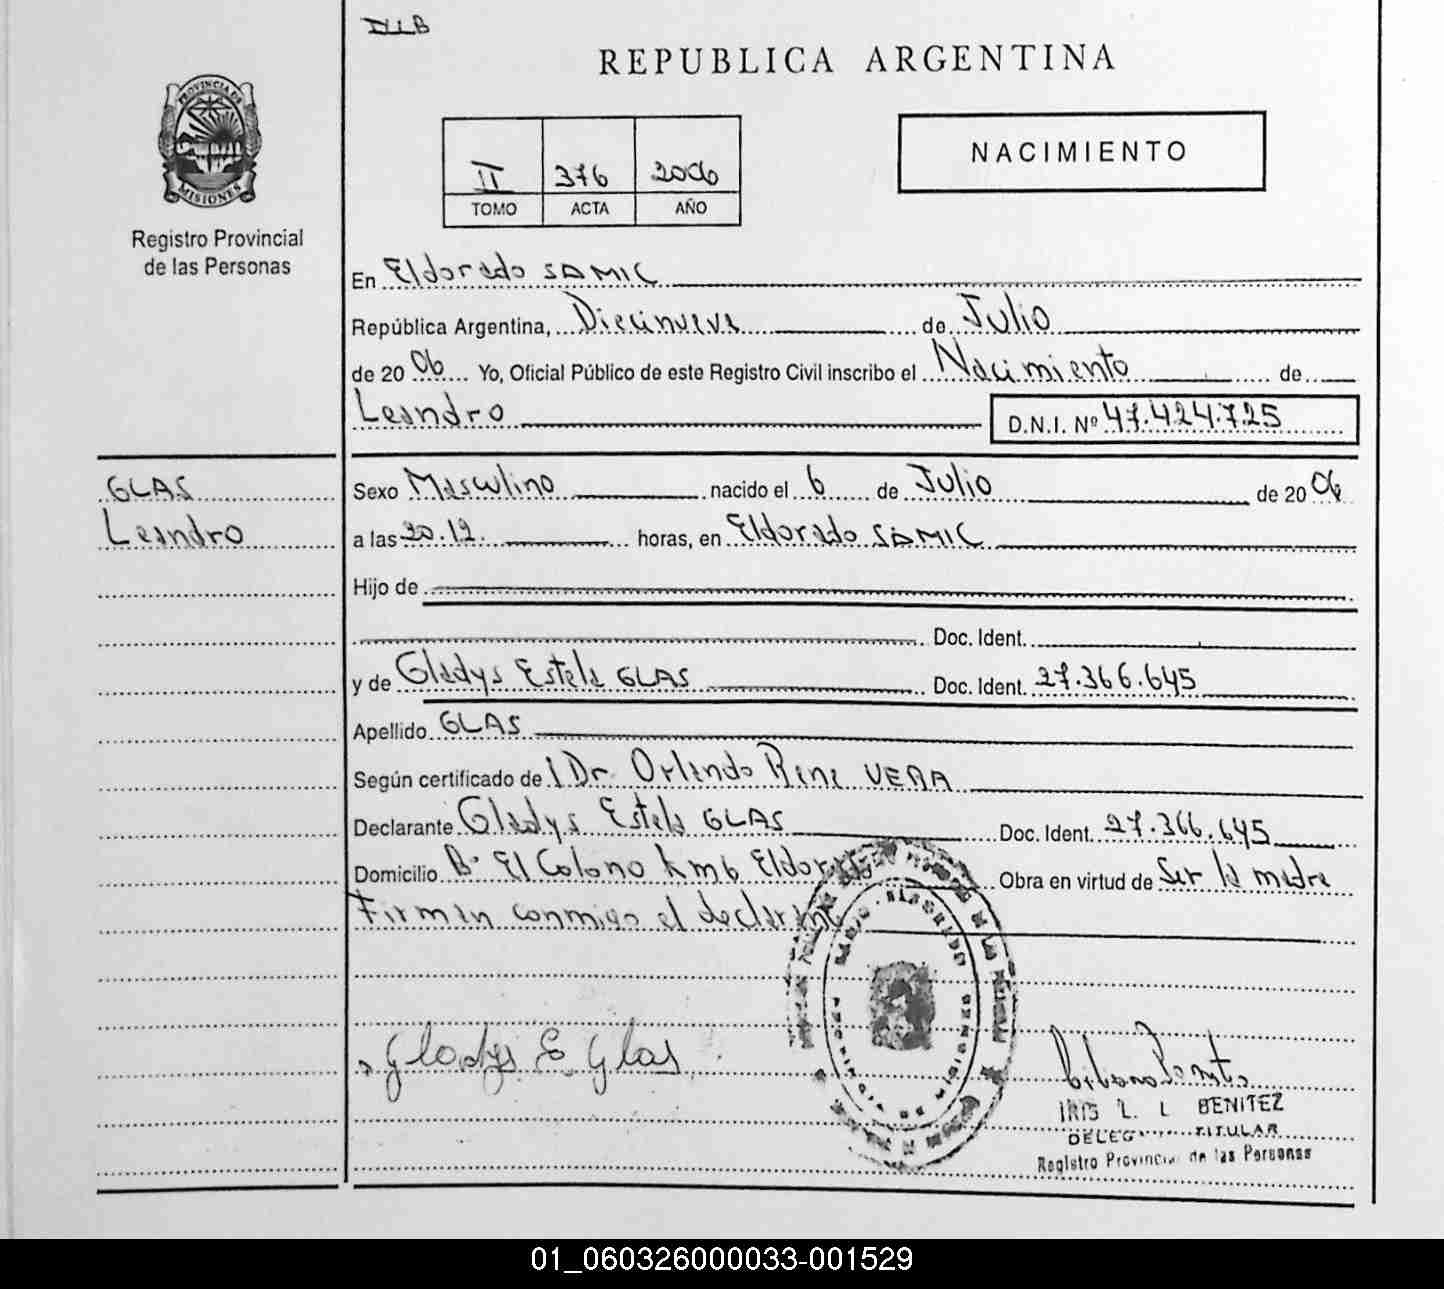 REPUBLICA ARGENTINA
PROVINCIA DE
MISIONES
Registro Provincial
de las Personas
II 376 2006
TOMO ACTA AÑO
NACIMIENTO
En Eldorado SAMIC
República Argentina, Diecinueve de Julio
de 2006 Yo, Oficial Público de este Registro Civil inscribo el Nacimiento de
Leandro D.N.I. Nº 47.424.725
GLAS
Leandro
Sexo Masculino nacido el 6 de Julio de 2006
a las 20.12. horas, en Eldorado SAMIC
Hijo de
Doc. Ident.
y de Gladys Estela GLAS Doc. Ident. 27.366.645
Apellido GLAS
Según certificado de l Dr. Orlando Rene VERA
Declarante Gladys Estela GLAS Doc. Ident. 27.366.645
Domicilio Bº El Colono km6 Eldorado Obra en virtud de Ser la madre
Firman conmigo el declarante
Gladys E Glas
IRIS L. L BENITEZ
TITULAR
Registro Provincial de las Personas
01_060326000033-001529